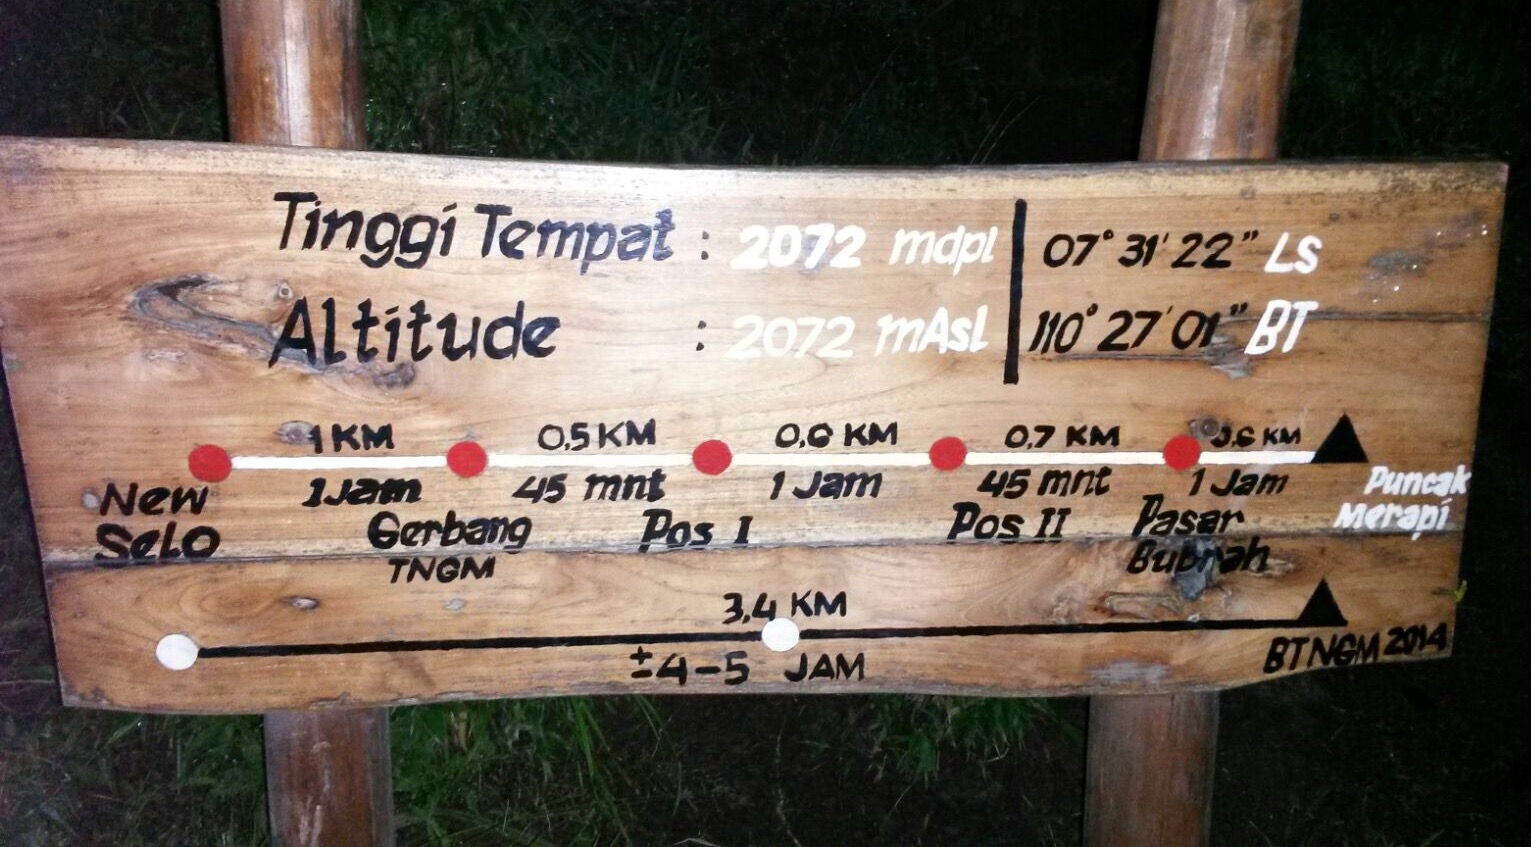 Tinggi Tempat : 2072 mdpl 07° 31' 22" LS
Altitude : 2072 mAsl 110° 27' 01" BT
1 KM 0,5 KM 0,6 KM 0,7 KM 0,6 KM
1 Jam 45 mnt 1 Jam 45 mnt 1 Jam
New Selo Gerbang TNGM Pos I Pos II Pasar Bubrah Puncak Merapi
3,4 KM
±4-5 JAM
BTNGM 2014